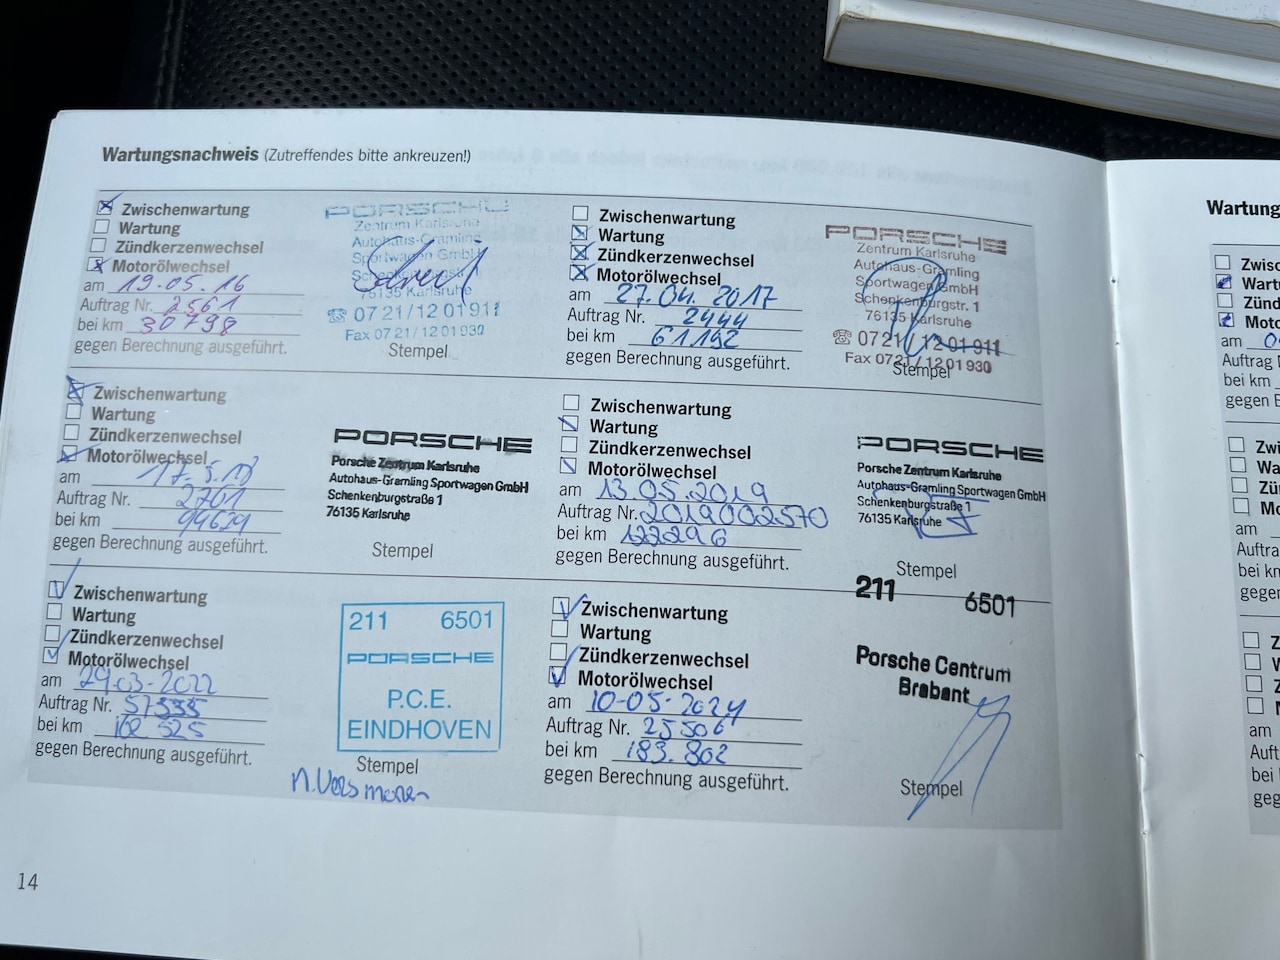 Wartungsnachweis (Zutreffendes bitte ankreuzen!)
Zwischenwartung
Wartung
Zündkerzenwechsel
Motorölwechsel
am 19.05.16
Auftrag Nr. 2561
bei km 30798
gegen Berechnung ausgeführt.
PORSCHE
Zentrum Karlsruhe
Autohaus-Gramling
Sportwagen GmbH
Schenkenburgstr. 1
76135 Karlsruhe
☎ 07 21/12 01 911
Fax 07 21/12 01 930
Stempel
Zwischenwartung
Wartung
Zündkerzenwechsel
Motorölwechsel
am 27.04.2017
Auftrag Nr. 2444
bei km 61192
gegen Berechnung ausgeführt.
PORSCHE
Zentrum Karlsruhe
Autohaus-Gramling
Sportwagen GmbH
Schenkenburgstr. 1
76135 Karlsruhe
☎ 07 21/12 01 911
Fax 07 21/12 01 930
Stempel
Zwischenwartung
Wartung
Zündkerzenwechsel
Motorölwechsel
am 17.5.18
Auftrag Nr. 2701
bei km
gegen Berechnung ausgeführt.
PORSCHE
Porsche Zentrum Karlsruhe
Autohaus-Gramling Sportwagen GmbH
Schenkenburgstraße 1
76135 Karlsruhe
Stempel
Zwischenwartung
Wartung
Zündkerzenwechsel
Motorölwechsel
am 13.05.2019
Auftrag Nr. 2019002570
bei km 122296
gegen Berechnung ausgeführt.
PORSCHE
Porsche Zentrum Karlsruhe
Autohaus-Gramling Sportwagen GmbH
Schenkenburgstraße 1
76135 Karlsruhe
Stempel
Zwischenwartung
Wartung
Zündkerzenwechsel
Motorölwechsel
am 29-03-2022
Auftrag Nr.
bei km
gegen Berechnung ausgeführt.
211 6501
PORSCHE
P.C.E.
EINDHOVEN
Stempel
Zwischenwartung
Wartung
Zündkerzenwechsel
Motorölwechsel
am 10-05-2024
Auftrag Nr. 25506
bei km 183.802
gegen Berechnung ausgeführt.
211 6501
Porsche Centrum
Brabant
Stempel
14
Wartung
Zwisc
Wartu
Zünd
Moto
am
Auftrag
bei km
gegen B
Zwi
Wa
Zü
Mo
am
Auftra
bei km
gege
Z
W
Z
am
Auft
bei
geg